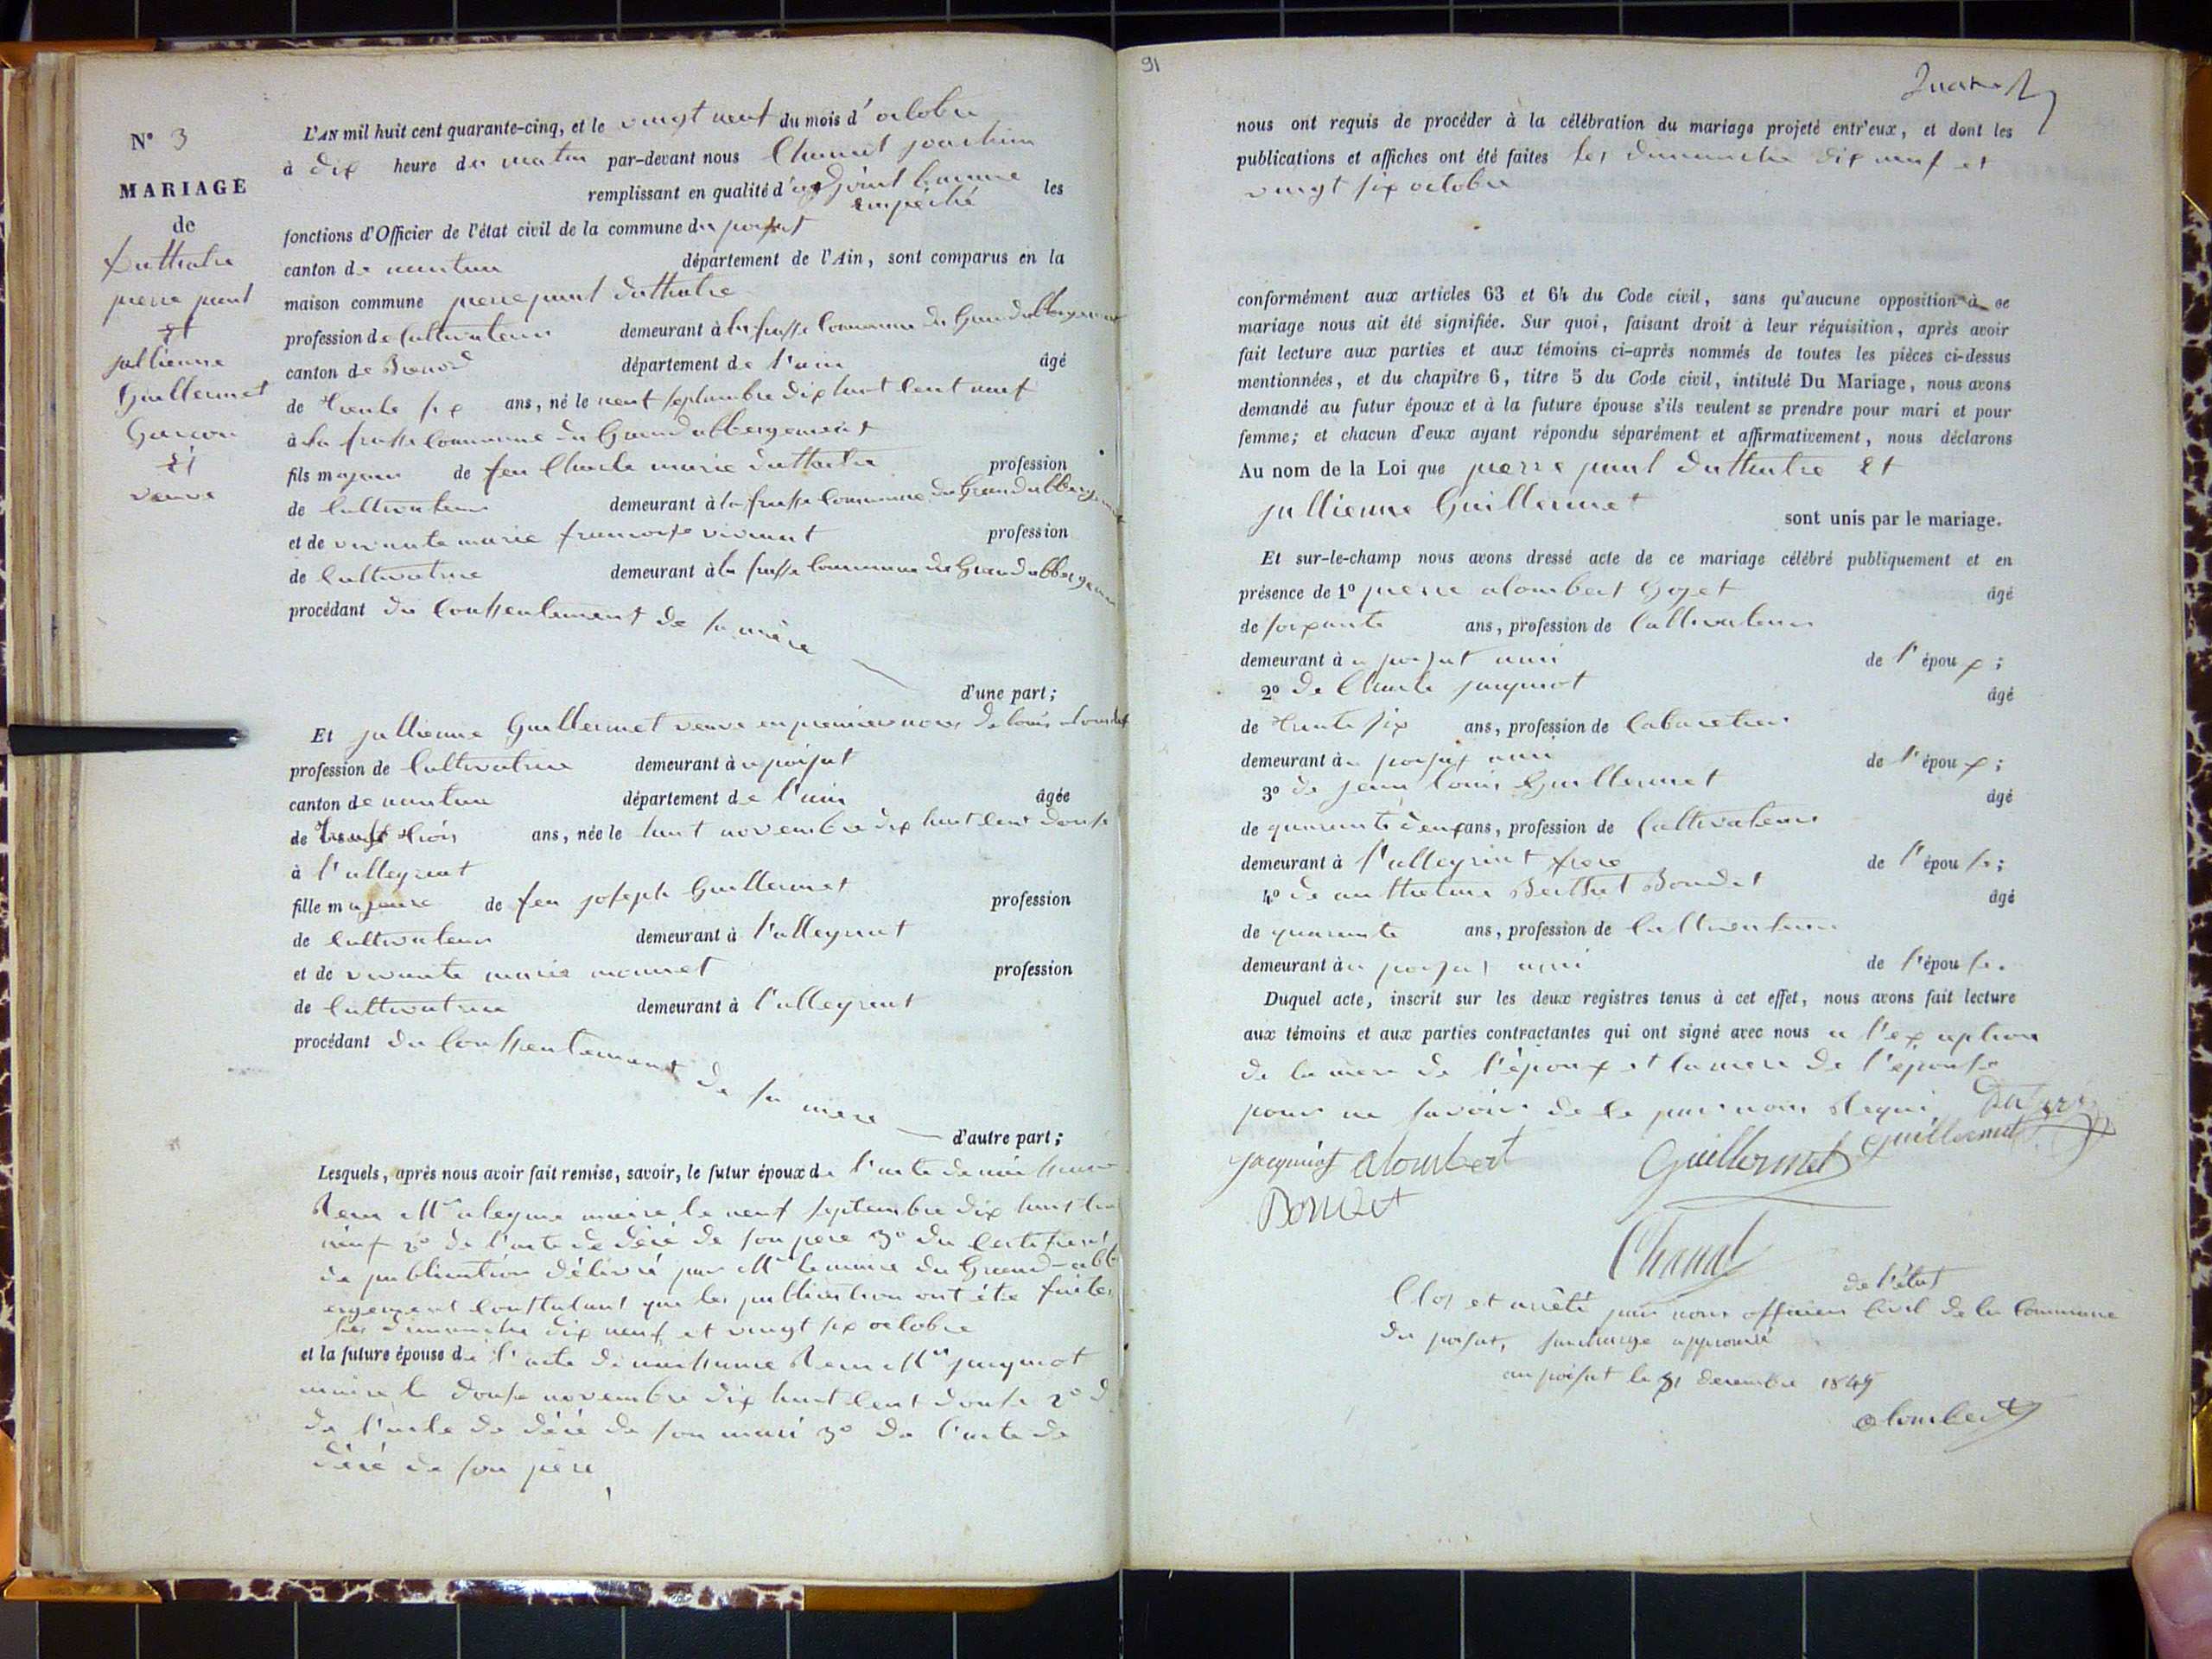 N° 3
MARIAGE
de
Duthalre
pierre paul
et
jullienne
Guillermet
Garcon
Et
veuve
L'AN mil huit cent quarante-cinq, et le vingt neuf du mois d'octobre
à dix heure du matin par-devant nous Chanel joachim
remplissant en qualité d'adjoint les
empéché
fonctions d'Officier de l'état civil de la commune du poisat
canton de nantua département de l'Ain, sont comparus en la
maison commune pierre paul
profession de Cultivateur demeurant à la frasse Commune du Grand abbergement
canton de Brenod département de l'ain âgé
de trente six ans, né le neuf septembre dix huit cent neuf
à la frasse Commune du Grand abbergement
fils majeur de feu Charle marie profession
de Cultivateur demeurant à la frasse Commune du Grand abbergement
et de vivante marie francoise viviant profession
de Cultivatrice demeurant à la frasse Commune du Grand abbergement
procédant du Consentement de sa mère
d'une part;
Et jullienne Guillermet veuve en premier noces de louis alombert
profession de Cultivatrice demeurant à u poisat
canton de nantua département de l'ain âgée
de trois ans, née le huit novembre dix huit cent douse
à l'alleyriat
fille majeure de feu joseph Guillermet profession
de Cultivateur demeurant à l'alleyriat
et de vivante marie monnet profession
de Cultivatrice demeurant à l'alleyriat
procédant du Consentement de sa mere
d'autre part;
Lesquels, après nous avoir fait remise, savoir, le futur époux de l'acte de
maire le neuf septembre dix huit cent
neuf 2° de l'acte de décé de son pere 3° du Certificat
de publication délivré par Mr le maire du Grand-abb
ergement Constatant que les publication ont été faites
les dimanche dix neuf et vingt six octobre
et la future épouse de l'acte de naissance Mr jacquiot
maire le douse novembre dix huit cent douse 2° d
de l'acte de décé de son mari 3° de l'acte de
décé de son père
91
nous ont requis de procéder à la célébration du mariage projeté entr'eux, et dont les
publications et affiches ont été faites les dimanche dix neuf et
vingt six octobre
conformément aux articles 63 et 64 du Code civil, sans qu'aucune opposition à ce
mariage nous ait été signifiée. Sur quoi, faisant droit à leur réquisition, après avoir
fait lecture aux parties et aux témoins ci-après nommés de toutes les pièces ci-dessus
mentionnées, et du chapitre 6, titre 5 du Code civil, intitulé Du Mariage, nous avons
demandé au futur époux et à la future épouse s'ils veulent se prendre pour mari et pour
femme; et chacun d'eux ayant répondu séparément et affirmativement, nous déclarons
Au nom de la Loi que pierre paul Et
jullienne Guillermet sont unis par le mariage.
Et sur-le-champ nous avons dressé acte de ce mariage célébré publiquement et en
présence de 1° pierre alombert Goget âgé
de soixante ans, profession de Cultivateur
demeurant à u poisat ami de l'époux;
2° de Charle jacquiot âgé
de trente six ans, profession de Cabaretier
demeurant à u poisat ami de l'époux;
3° de jean louis Guillermet âgé
de quarante deux ans, profession de Cultivateur
demeurant à l'alleyriat frere de l'épouse;
4° de anthelme Berthet Bondet âgé
de quarante ans, profession de Cultivateur
demeurant à u poisat ami de l'épouse.
Duquel acte, inscrit sur les deux registres tenus à cet effet, nous avons fait lecture
aux témoins et aux parties contractantes qui ont signé avec nous a l'exception
de la mere de l'époux et la mere de l'épouse
pour ne savoir de ce par nous
Guillermet
jacquiot alombert Guillermet
Bondet
Chanel
Clos et arrêté par nous officier de l'état Civil de la Commune
du poisat, surcharge approuvé
au poisat le 31 decembre 1845
alombert